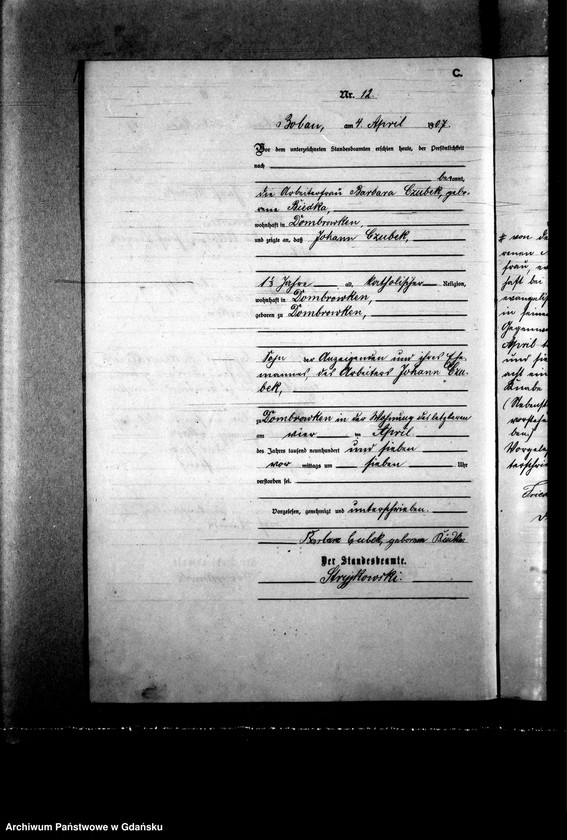 C.
Nr. 12.
Bobau, am 4. April 1907.
Vor dem unterzeichneten Standesbeamten erschien heute, der Persönlichkeit
nach
bekannt,
die Arbeiterfrau Barbara Czubek, gebo-
rene Riedka,
wohnhaft in Dombrowken,
und zeigte an, daß Johann Czubek,
Jahre alt, katholischer Religion,
wohnhaft in Dombrowken,
geboren zu Dombrowken,
Sohn der Anzeigenden und ihres Ehe-
mannes, des Arbeiters Johann Czu-
bek,
zu Dombrowken in der Wohnung des letzteren
am vier ten April
des Jahres tausend neunhundert und sieben
vor mittags um sieben Uhr
verstorben sei.
Vorgelesen, genehmigt und unterschrieben.
Barbara Czubek, geborene Riedka
Der Standesbeamte.
Stryjkowski.
* von de
frau
haft bei
evangeli
in seine
Gegenwa
April
und sie
acht ein
Knabe
(Nebenst
vorstehe
ben)
Vorgele
Archiwum Państwowe w Gdańsku